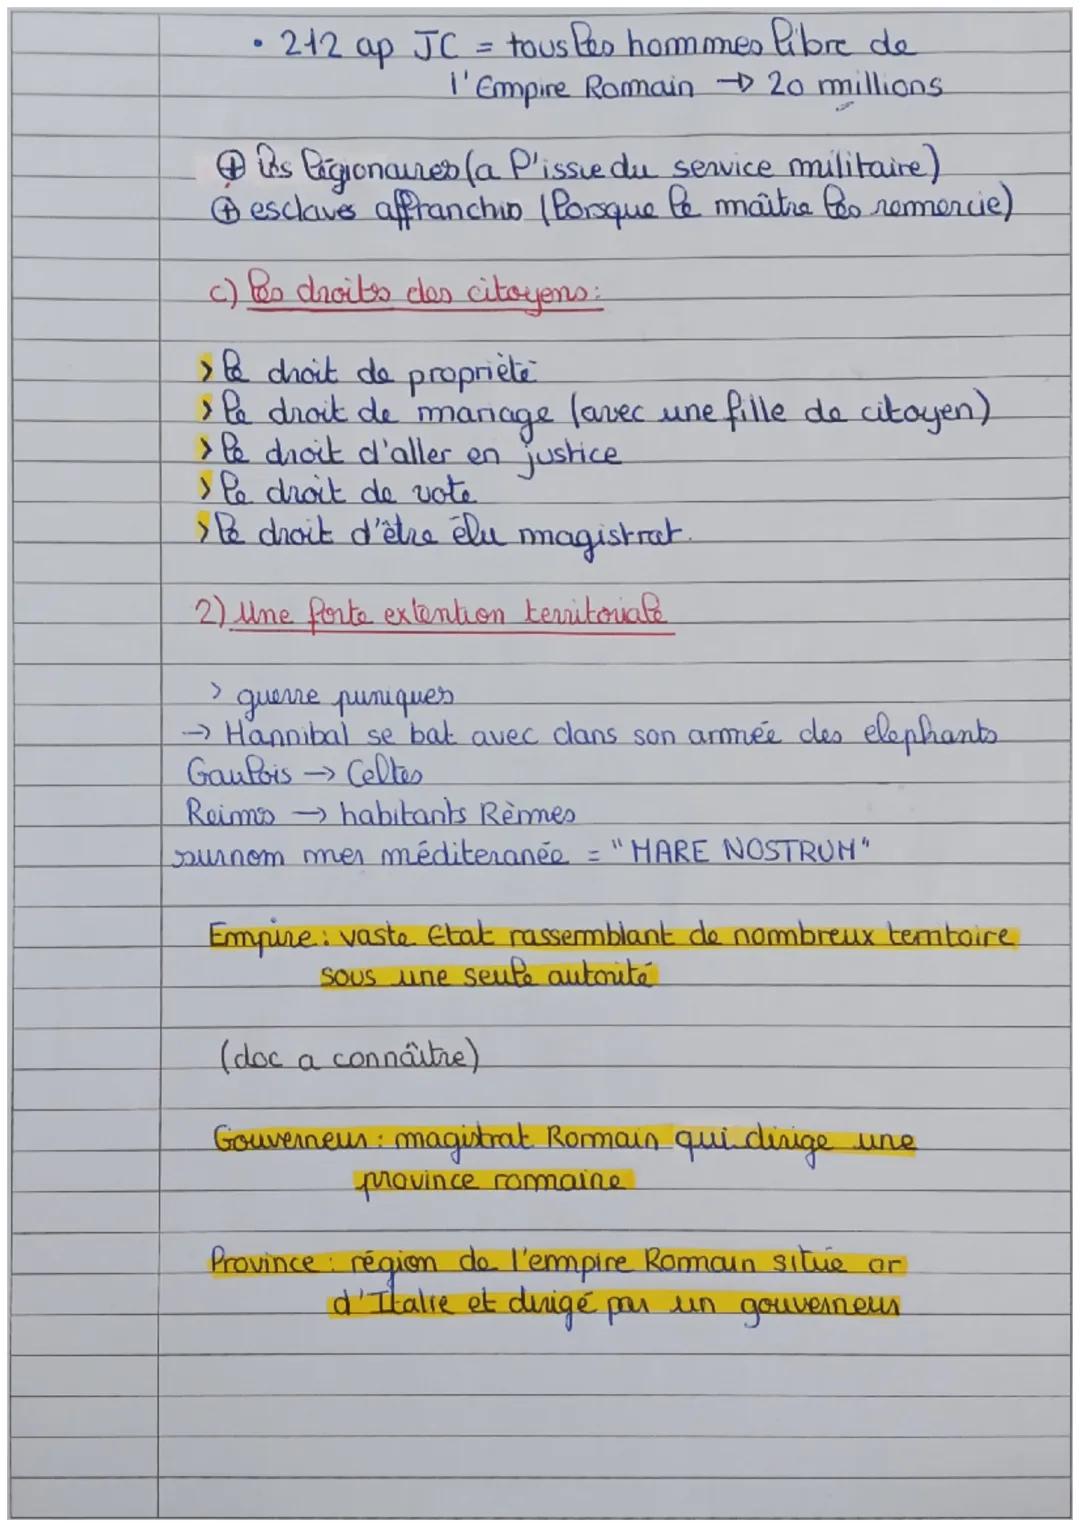 • 212 ap JC = tous les hommmes libre de
l'Empire Romain → 20 millions
⊕ les légionaires (a l'issue du service militaire)
⊕ esclaves affranchis (lorsque le maître les remercie)
c) les droits des citoyens :
> le droit de propriété
> le droit de mariage (avec une fille de citoyen)
> le droit d'aller en justice
> le droit de vote
> le droit d'être élu magistrat.
2) Une forte extention territoriale
> guerre puniques
→ Hannibal se bat avec dans son armée des elephants
Gaulois → Celtes
Reims → habitants Rèmes
surnom mer méditeranée = "MARE NOSTRUM"
Empire : vaste Etat rassemblant de nombreux territoire
sous une seule autorité
(doc a connaître)
Gouverneur : magistrat Romain qui dirige une
province romaine
Province : région de l'empire Romain situé or
d'Italie et dirigé par un gouverneur